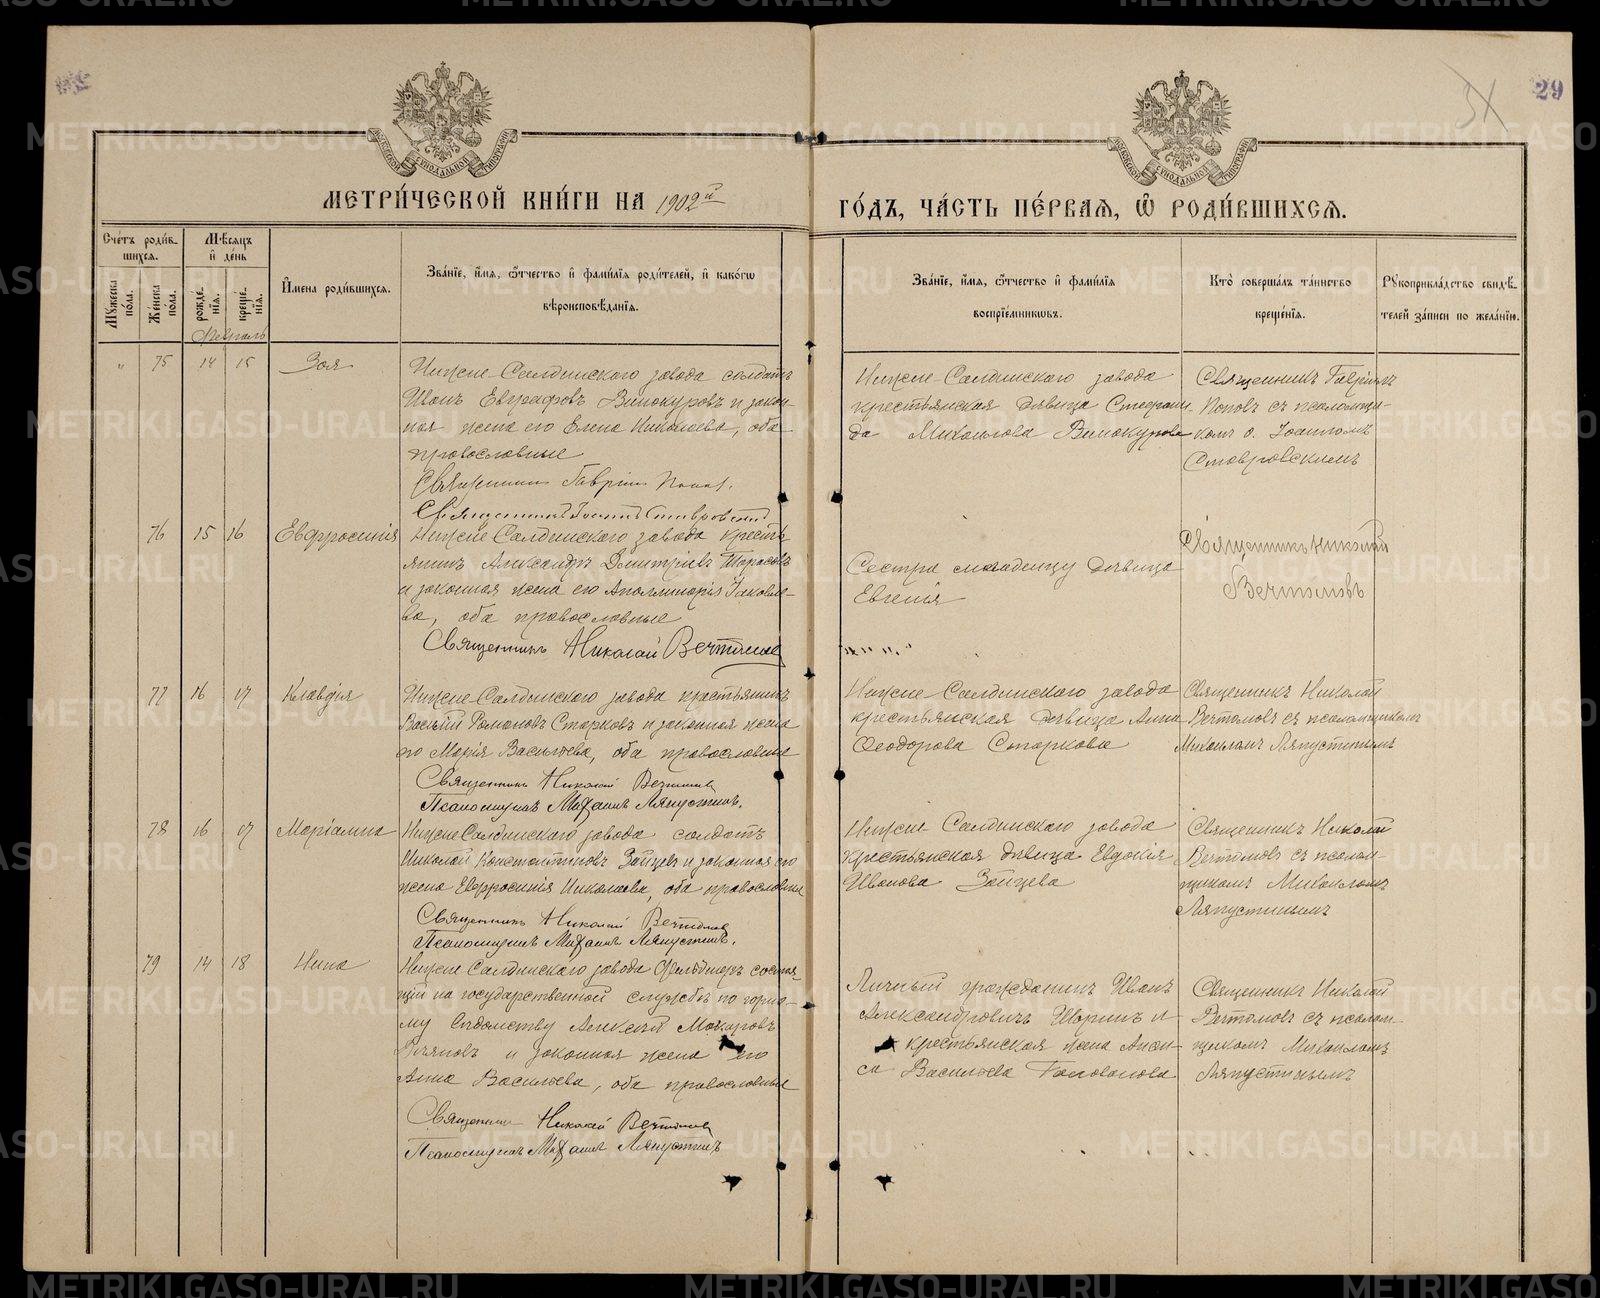 29
МЕТРИ́ЧЕСКОЙ КНИ́ГИ НА 1902й
ГО́ДЪ, ЧА́СТЬ ПЕ́РВАѦ, Ѽ РОДИ́ВШИХСѦ.
Сче́тъ роди́в-
шихся.
Мꙋжеска по́ла.
Же́нска по́ла.
Мѣ́сяцъ
и҆ де́нь
рожде́нїѧ.
креще́нїѧ.
Февраль
И҆мена роди́вшихся.
Зва́нїе, и҆́мѧ, ѻ҆́тчество и҆ фами́лїѧ роди́телей, и҆ како́гѡ
вѣроисповѣ́данїѧ.
Зва́нїе, и҆́мѧ, ѻ҆́тчество и҆ фами́лїѧ
воспрїе́мникѡвъ.
Кто̀ соверша́лъ та́инство
креще́нїѧ.
Рꙋкоприкла́дство свидѣ́-
телей за́писи по жела́нїю.
" 75 14 15 Зоя
Нижне-Салдинскаго завода солдатъ
Иванъ Евграфовъ Винокуровъ и закон-
ная жена его Елена Николаева, оба
православные
Священникъ Гавріилъ Поповъ.
Священникъ Іоаннъ Ставровскій
Нижне-Салдинскаго завода
крестьянская дѣвица Степани-
да Михаилова Винокурова
Священникъ Гавріилъ
Поповъ съ псаломщи-
комъ о. Іоанномъ
Ставровскимъ
76 15 16 Евфросинія
Нижне Салдинскаго завода кресть-
янинъ Александръ Димитріевъ Тарасовъ
и законная жена его Аполлинарія Іаковле-
ва, оба православные
Священникъ Николай Вечтомовъ
Сестра младенцу дѣвица
Евгенія
Священникъ Николай
Вечтомовъ
77 16 17 Клавдія
Нижне Салдинскаго завода крестьянинъ
Василій Романовъ Старковъ и законная жена
его Марія Васильева, оба православные
Священникъ Николай Вечтомовъ
Псаломщикъ Михаилъ Ляпустинъ.
Нижне-Салдинскаго завода
крестьянская дѣвица Анна
Ѳеодорова Старкова
Священникъ Николай
Вечтомовъ съ псаломщикомъ
Михаиломъ Ляпустинымъ
78 16 17 Маріамна
Нижне Салдинскаго завода солдатъ
Николай Константиновъ Зайцевъ и законная его
жена Евфросинія Николаева, оба православные
Священникъ Николай Вечтомовъ
Псаломщикъ Михаилъ Ляпустинъ.
Нижне-Салдинскаго завода
крестьянская дѣвица Евдокія
Иванова Зайцева
Священникъ Николай
Вечтомовъ съ псалом-
щикомъ Михаиломъ
Ляпустинымъ
79 14 18 Нина
Нижне Салдинскаго завода Фельдшеръ состоя-
щій на государственной службѣ по горно-
му вѣдомству Алексѣй Макаровъ
и законная жена его
Анна Васильева, оба православные
Священникъ Николай Вечтомовъ
Псаломщикъ Михаилъ Ляпустинъ
Личный гражданинъ Иванъ
Александровичъ Шоринъ и
крестьянская жена Аниси-
са Васильева Голованова
Священникъ Николай
Вечтомовъ съ псалом-
щикомъ Михаиломъ
Ляпустинымъ
METRIKI.GASO-URAL.RU